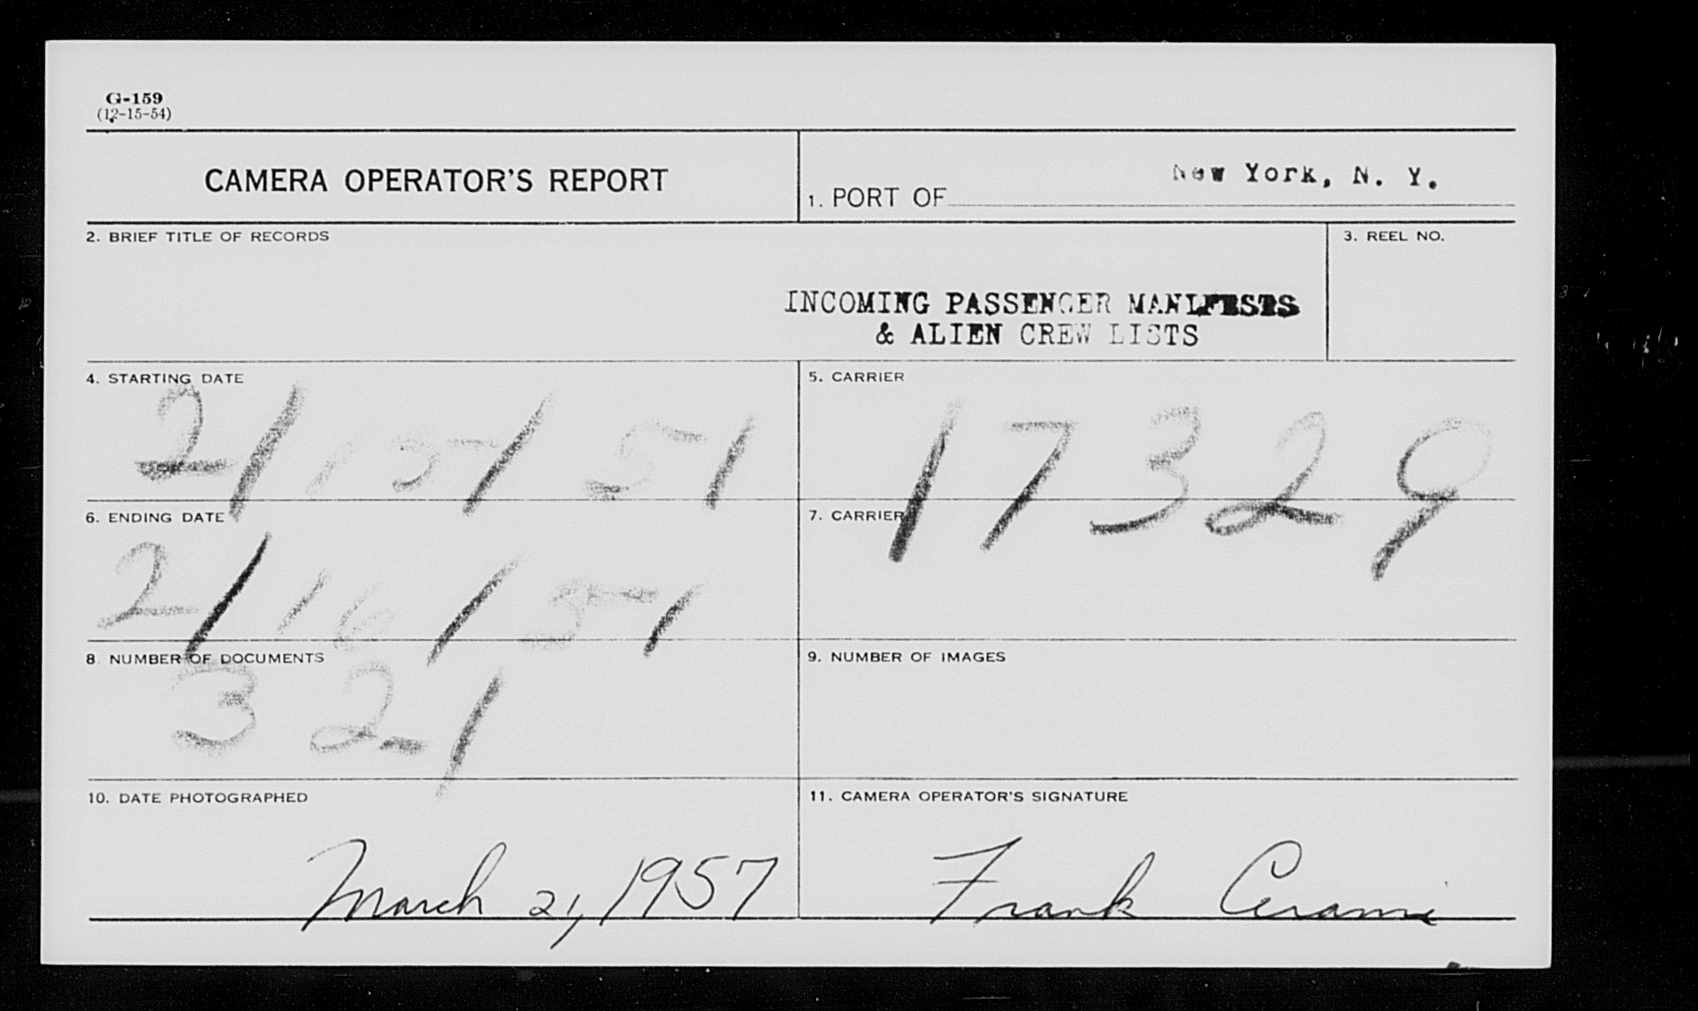 G-159
(12-15-54)
CAMERA OPERATOR'S REPORT
1. PORT OF New York, N. Y.
2. BRIEF TITLE OF RECORDS
3. REEL NO.
INCOMING PASSENGER MANIFESTS
& ALIEN CREW LISTS
4. STARTING DATE
2/15/51
5. CARRIER
17329
6. ENDING DATE
2/16/51
7. CARRIER
8. NUMBER OF DOCUMENTS
321
9. NUMBER OF IMAGES
10. DATE PHOTOGRAPHED
March 21, 1957
11. CAMERA OPERATOR'S SIGNATURE
Frank Cerami